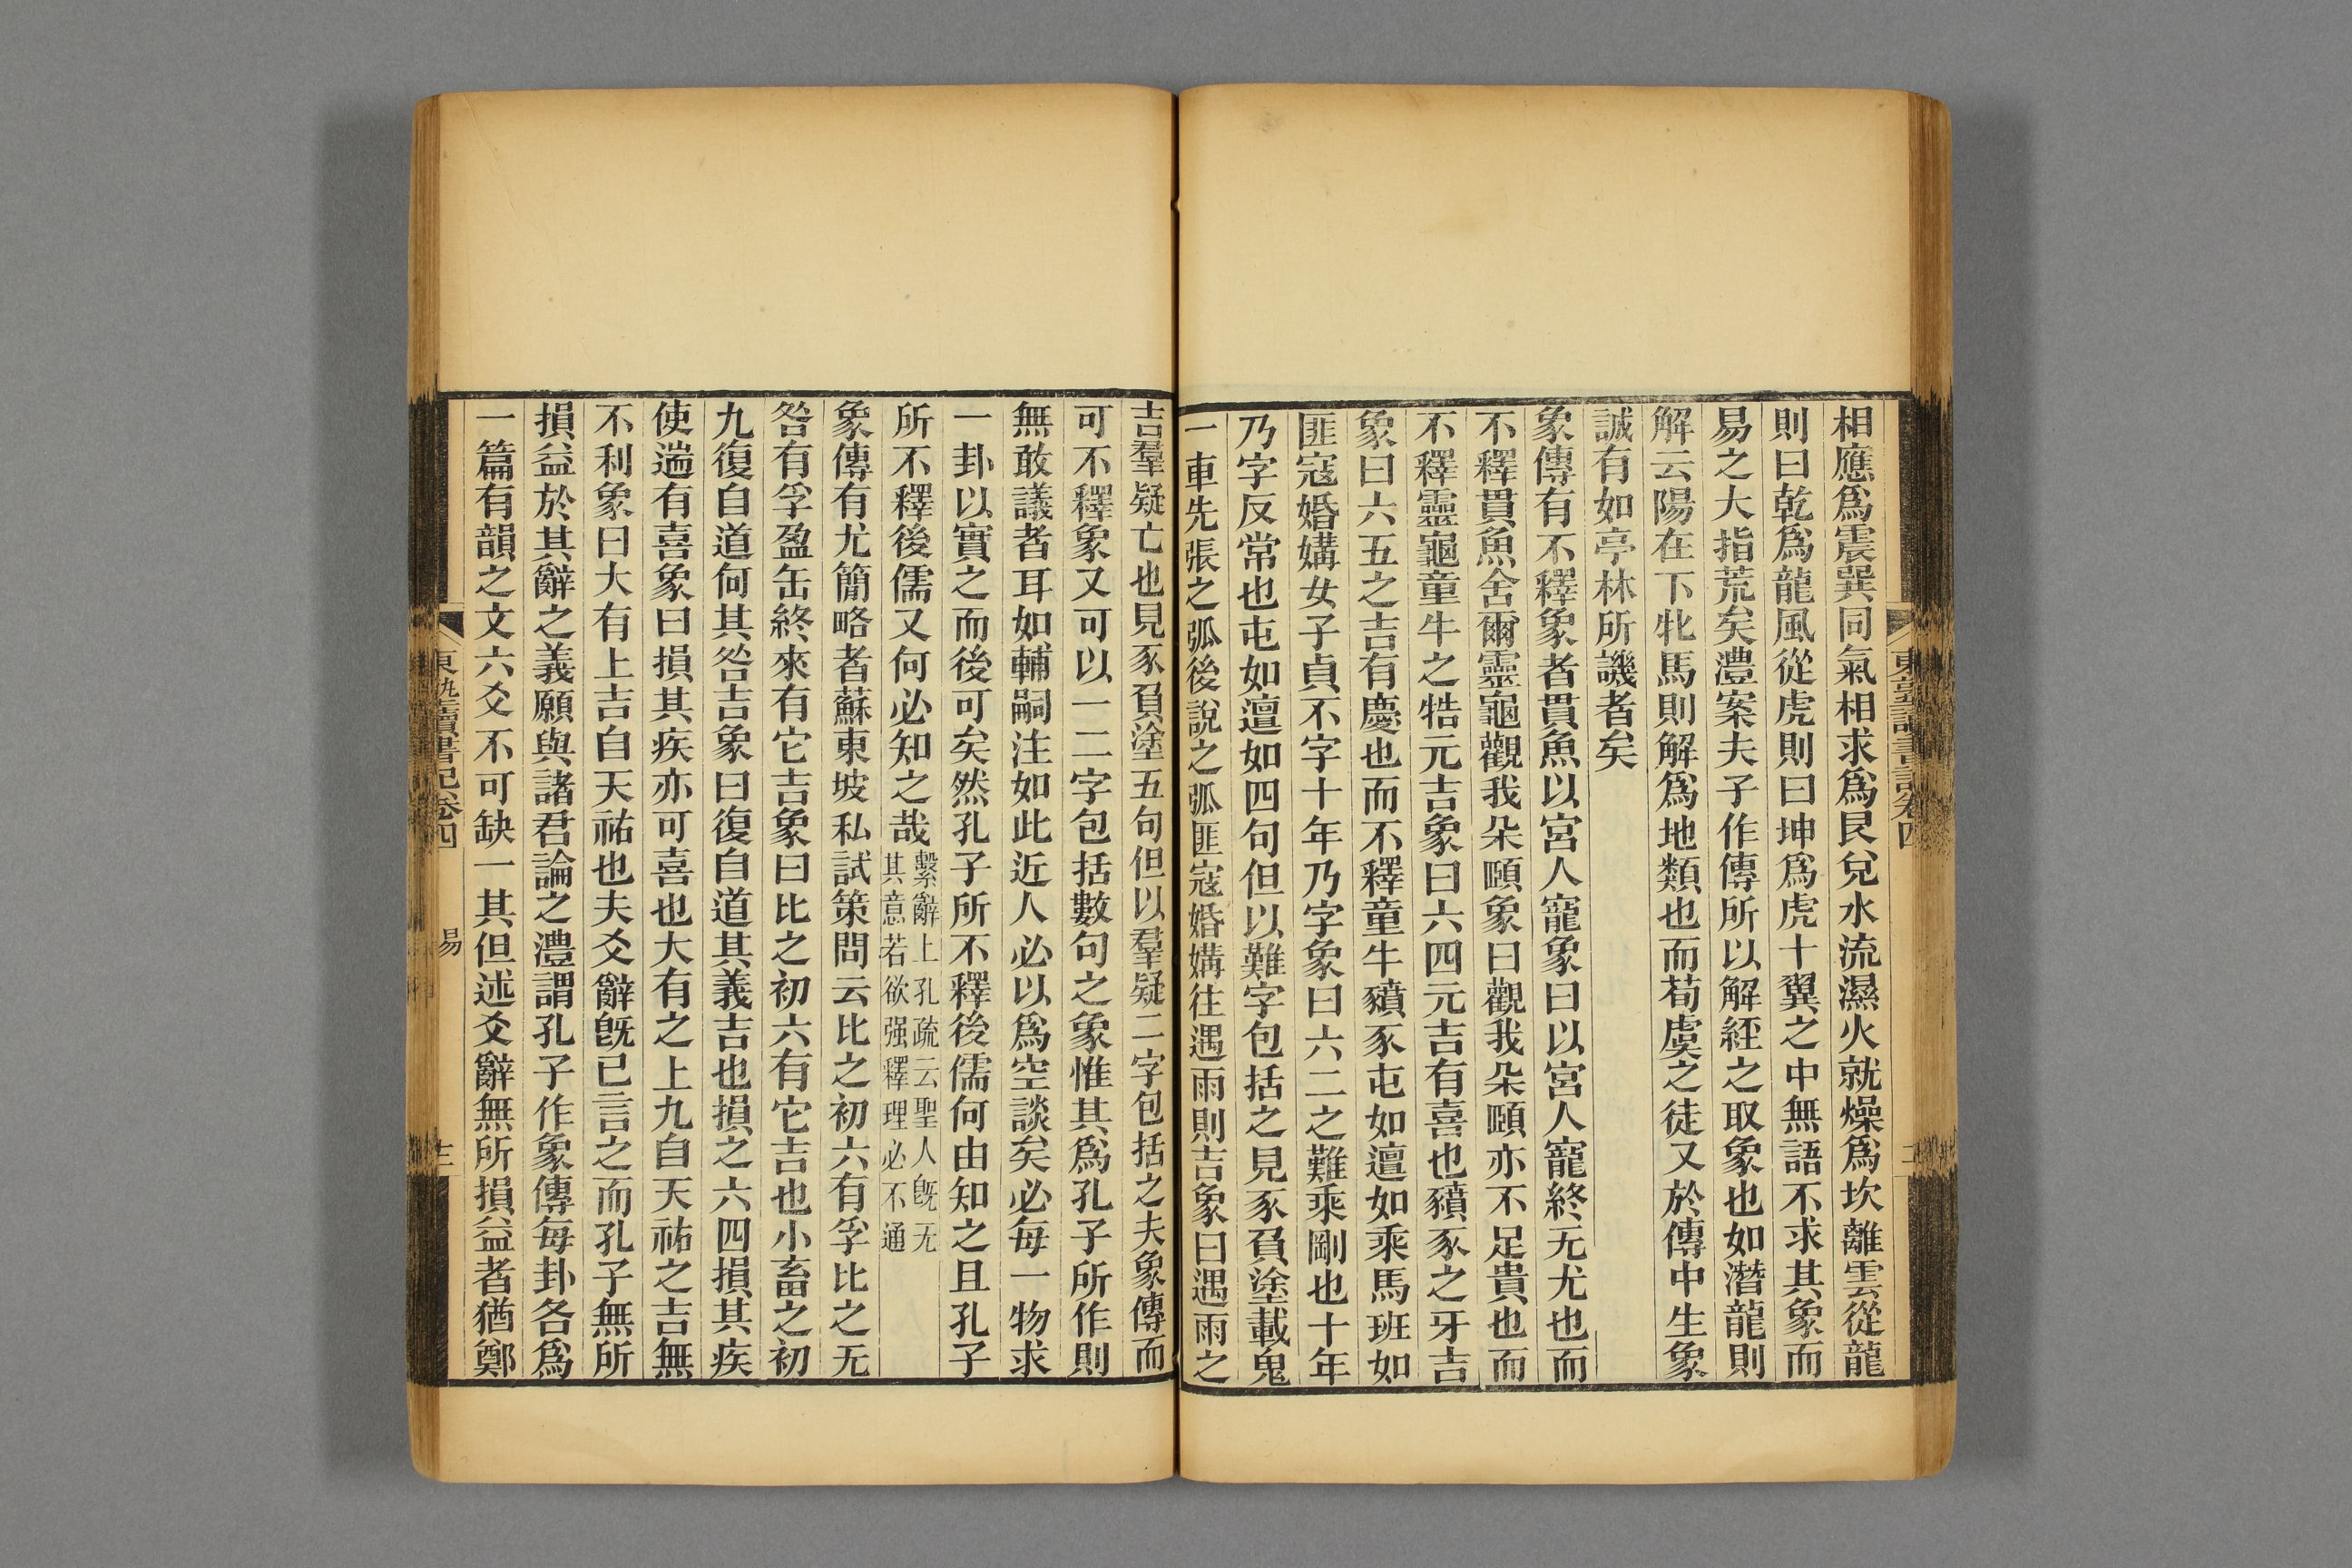 相應爲震巽同氣相求爲艮兌水流濕火就燥爲坎離雲從龍
則曰乾爲龍風從虎則曰坤爲虎十翼之中無語不求其象而
易之大指荒矣澧案夫子作傳所以解經之取象也如潛龍則
解云陽在下牝馬則解爲地類也而荀虞之徒又於傳中生象
誠有如亭林所譏者矣
象傳有不釋象者貫魚以宮人寵象曰以宮人寵終无尤也而
不釋貫魚舍爾靈龜觀我朵頤象曰觀我朵頤亦不足貴也而
不釋靈龜童牛之牿元吉象曰六四元吉有喜也豶豕之牙吉
象曰六五之吉有慶也而不釋童牛豶豕屯如邅如乘馬班如
匪寇婚媾女子貞不字十年乃字象曰六二之難乘剛也十年
乃字反常也屯如邅如四句但以難字包括之見豕負塗載鬼
一車先張之弧後說之弧匪寇婚媾往遇雨則吉象曰遇雨之
吉羣疑亡也見豕負塗五句但以羣疑二字包括之夫象傳而
可不釋象又可以一二字包括數句之象惟其爲孔子所作則
無敢議者耳如輔嗣注如此近人必以爲空談矣必每一物求
一卦以實之而後可矣然孔子所不釋後儒何由知之且孔子
所不釋後儒又何必知之哉繫辭上孔疏云聖人旣无
其意若欲强釋理必不通
象傳有尤簡略者蘇東坡私試策問云比之初六有孚比之无
咎有孚盈缶終來有它吉象曰比之初六有它吉也小畜之初
九復自道何其咎吉象曰復自道其義吉也損之六四損其疾
使遄有喜象曰損其疾亦可喜也大有之上九自天祐之吉無
不利象曰大有上吉自天祐也夫爻辭旣已言之而孔子無所
損益於其辭之義願與諸君論之澧謂孔子作象傳每卦各爲
一篇有韻之文六爻不可缺一其但述爻辭無所損益者猶鄭
東塾讀書記卷四 易